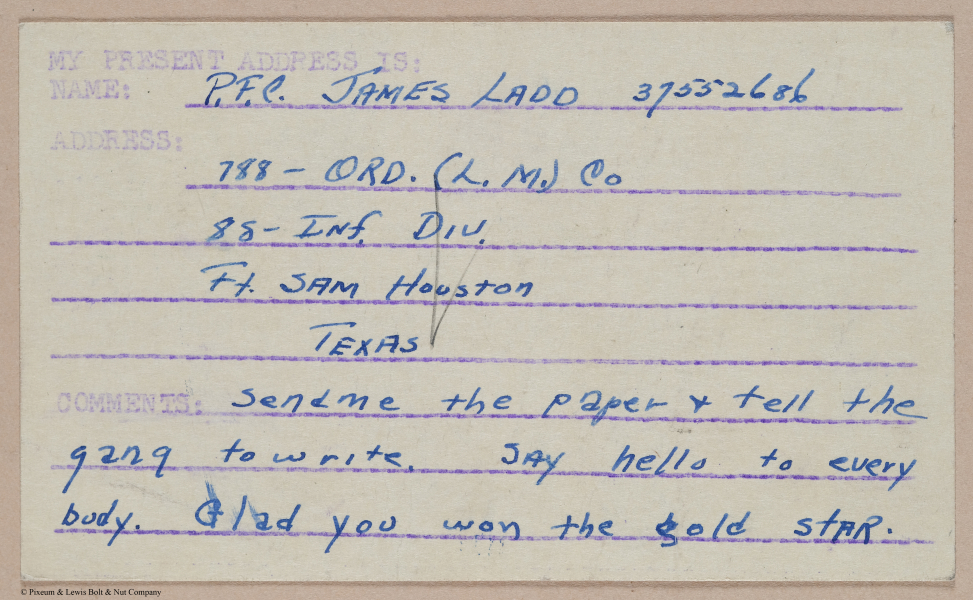 MY PRESENT ADDRESS IS:
NAME: P.F.C. JAMES LADD 37552686
ADDRESS:
788 - ORD. (L. M.) Co
88 - Inf. Div.
Ft. SAM Houston
TEXAS
COMMENTS: Send me the paper + tell the
gang to write. SAY hello to every
body. Glad you won the gold stAR.
© Pixeum & Lewis Bolt & Nut Company